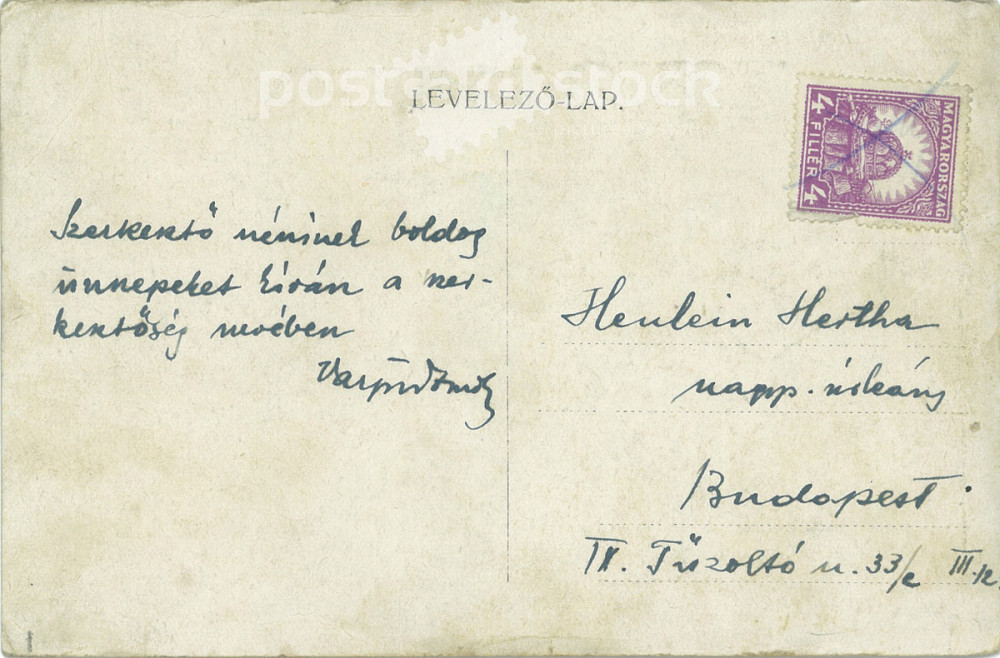 postcardstock
LEVELEZŐ-LAP.
MAGYARORSZÁG
4 FILLÉR 4
Szerkesztő néninek boldog
ünnepeket kíván a szer-
kesztőség nevében
Henlein Hertha
napp. úrleány
Budapest.
IX. Tűzoltó u. 33/c III.12.